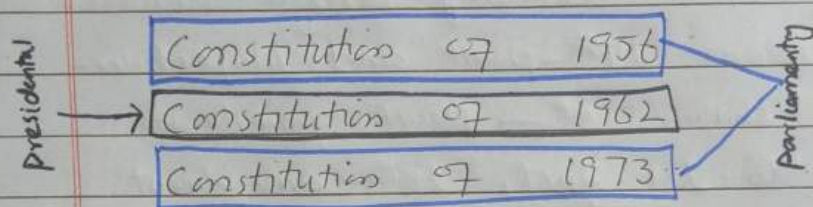 presidental
Constitution of 1956
Constitution of 1962
Constitution of 1973
parliamentry